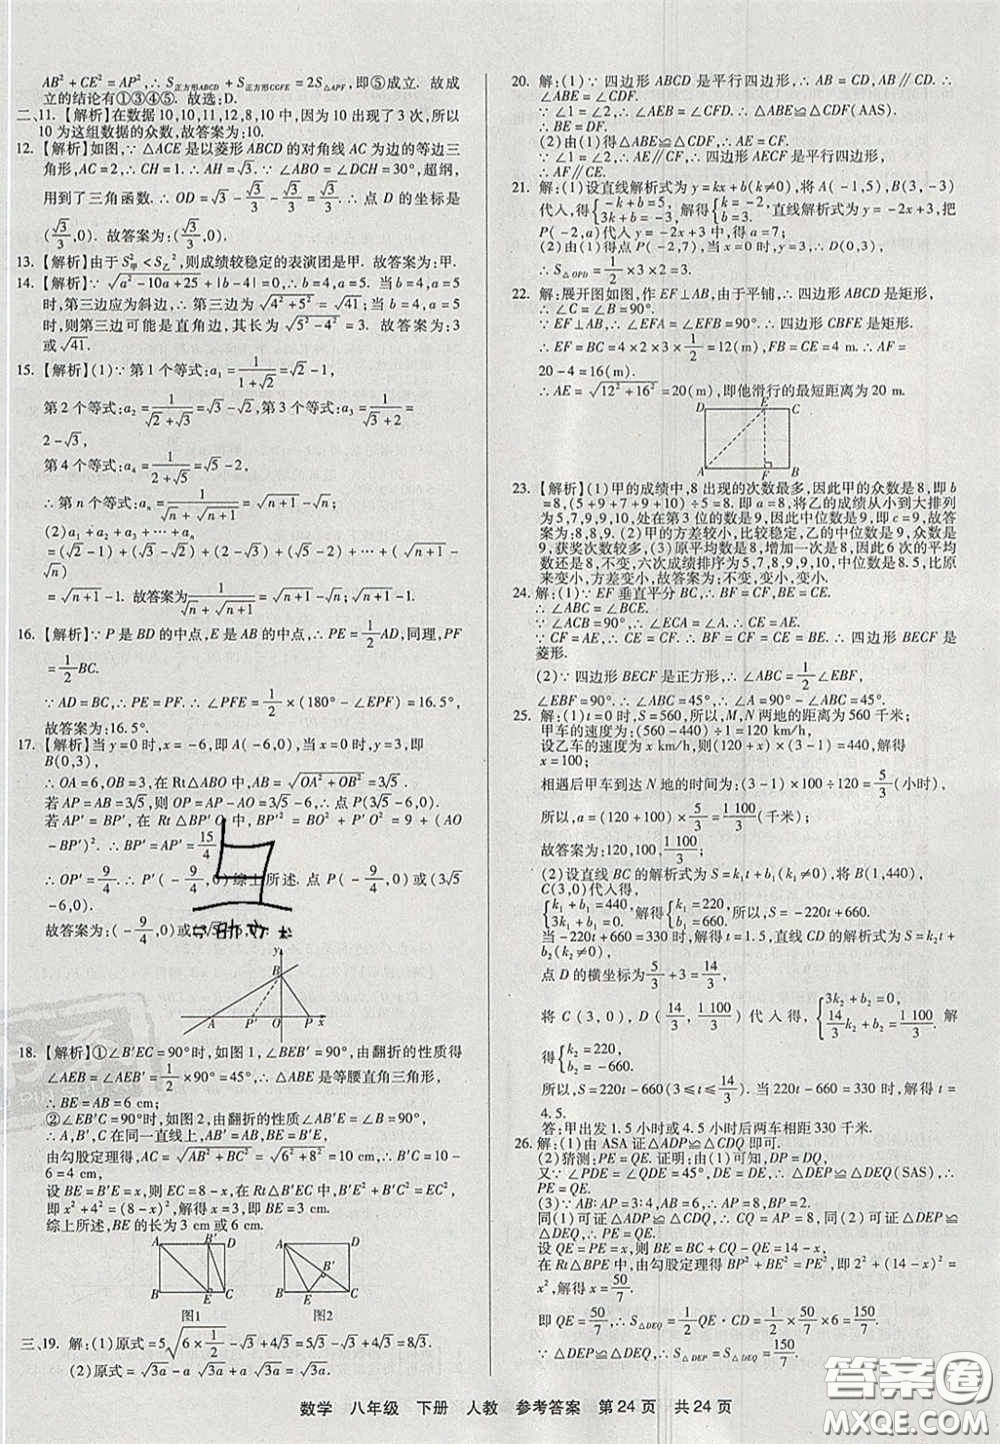 AB²+CE²=AP²,∴S正方形ABCD+S正方形CGFE=2S△APF,即⑤成立. 故成
立的结论有①③④⑤. 故选:D.
二、11.【解析】在数据10,10,11,12,8,10中,因为10出现了3次,所以
10为这组数据的众数,故答案为:10.
12.【解析】如图,∵△ACE是以菱形ABCD的对角线AC为边的等边三
角形,AC=2,∴CH=1.∴AH=√3.∵∠ABO=∠DCH=30°,超纲,
用到了三角函数.∴OD=√3-2√3/3=√3/3.∴点D的坐标是
(√3/3,0). 故答案为:(√3/3,0).
13.【解析】由于S甲²<S乙²,则成绩较稳定的表演团是甲. 故答案为:甲.
14.【解析】∵√(a²-10a+25)+|b-4|=0,∴b=4,a=5;当b=4,a=5
时,第三边应为斜边,∴第三边为√(4²+5²)=√41;当b=4,a=5
时,则第三边可能是直角边,其长为√(5²-4²)=3. 故答案为:3
或√41.
15.【解析】(1)∵第1个等式:a₁=1/(1+√2)=√2-1,
第2个等式:a₂=1/(√2+√3)=√3-√2,第3个等式:a₃=1/(√3+2)=
2-√3,
第4个等式:a₄=1/(2+√5)=√5-2,
∴第n个等式:aₙ=1/(√n+√(n+1))=√(n+1)-√n.
(2)a₁+a₂+a₃+…+aₙ
=(√2-1)+(√3-√2)+(2-√3)+(√5-2)+…+(√(n+1)-
√n)=√(n+1)-1. 故答案为1/(√n+√(n+1))=√(n+1)-√n;√(n+1)-1.
16.【解析】∵P是BD的中点,E是AB的中点,∴PE=1/2AD,同理,PF
=1/2BC.
∵AD=BC,∴PE=PF.∴∠PFE=1/2×(180°-∠EPF)=16.5°,
故答案为:16.5°.
17.【解析】当y=0时,x=-6,即A(-6,0),当x=0时,y=3,即
B(0,3),
∴OA=6,OB=3,在Rt△ABO中,AB=√(OA²+OB²)=3√5.
若AP=AB=3√5,则OP=AP-AO=3√5-6,∴点P(3√5-6,0).
若AP'=BP',在Rt△BP'O中,BP'²=BO²+P'O²=9+(AO
-BP')².∴BP'=AP'=15/4.
∴OP'=9/4.∴P'(-9/4,0)综上所述. 点P(-9/4,0)或(3√5
-6,0).
故答案为:(-9/4,0)或(3√5-6,0).
y
B
A P' O P x
18.【解析】①∠B'EC=90°时,如图1,∠BEB'=90°,由翻折的性质得
∠AEB=∠AEB'=1/2×90°=45°,∴△ABE是等腰直角三角形,
∴BE=AB=6 cm;
②∠EB'C=90°时,如图2,由翻折的性质∠AB'E=∠B=90°,
∴A,B',C在同一直线上,AB'=AB,BE=B'E,
由勾股定理得,AC=√(AB²+BC²)=√(6²+8²)=10 cm,∴B'C=10
-6=4 cm,
设BE=B'E=x,则EC=8-x,在Rt△B'EC中,B'E²+B'C²=EC²,
即x²+4²=(8-x)²,解得x=3,即BE=3 cm,
综上所述,BE的长为3 cm或6 cm.
A B' D
B E C
图1
A D
B'
B E C
图2
三、19. 解:(1)原式=5√(6×1/2)-√3+4√3=5√3-√3+4√3=8√3.
(2)原式=√3a-a√3a+a√3a=√3a.
20. 解:(1)∵四边形ABCD是平行四边形,∴AB=CD,AB∥CD.
∴∠ABE=∠CDF.
∵∠1=∠2,∴∠AEB=∠CFD.∴△ABE≌△CDF(AAS).
∴BE=DF.
(2)由(1)得△ABE≌△CDF,∴AE=CF.
∵∠1=∠2,∴AE∥CF,∴四边形AECF是平行四边形.
∴AF=CE.
21. 解:(1)设直线解析式为y=kx+b(k≠0),将A(-1,5),B(3,-3)
代入,得{-k+b=5, 3k+b=-3,解得{k=-2, b=3.直线解析式为y=-2x+3,把
P(-2,a)代入y=-2x+3中,得a=7;
(2)由(1)得点P(-2,7),当x=0时,y=3,∴D(0,3).
∴S△OPD=1/2×3×2=3.
22. 解:展开图如图,作EF⊥AB,由于平铺,∴四边形ABCD是矩形,
∴∠C=∠B=90°.
∵EF⊥AB,∴∠EFA=∠EFB=90°.∴四边形CBFE是矩形.
∴EF=BC=4×2×3×1/2=12(m),FB=CE=4 m.∴AF=
20-4=16(m).
∴AE=√(12²+16²)=20(m),即他滑行的最短距离为20 m.
D E C
A F B
23.【解析】(1)甲的成绩中,8出现的次数最多,因此甲的众数是8,即b
=8,(5+9+7+9+10)÷5=8. 即a=8,将乙的成绩从小到大排列
为5,7,9,9,10,处在第3位的数是9,因此中位数是9,即c=9,故答
案为:8,8,9;(2)甲的方差较小,比较稳定,乙的中位数是9,众数是
9,获奖次数较多,(3)原平均数是8,增加一次是8,因此6次的平均
数还是8,不变,六次成绩排序为5,7,8,9,9,10,中位数是8.5. 比原
来变小,方差变小,故答案为:不变,变小,变小.
24. 解:(1)∵EF垂直平分BC,∴CF=BF,BE=CE,∠BDE=90°.
∴∠ABC=∠BCE.
∵∠ACB=90°,∴∠ECA=∠A.∴CE=AE.
∵CF=AE,∴CE=CF.∴BF=CF=CE=BE.∴四边形BECF是
菱形.
(2)∵四边形BECF是正方形,∴∠ABC=1/2∠EBF,
∠EBF=90°.∴∠ABC=45°,∴∠A=90°-∠ABC=45°.
25. 解:(1)t=0时,S=560,所以,M,N两地的距离为560千米;
甲车的速度为:(560-440)÷1=120 km/h,
设乙车的速度为x km/h,则(120+x)×(3-1)=440,解得
x=100;
相遇后甲车到达N地的时间为:(3-1)×100÷120=5/3(小时),
所以,a=(120+100)×5/3=1 100/3(千米);
故答案为:120,100,1 100/3;
(2)设直线BC的解析式为S=k₁t+b₁(k₁≠0),将B(1,440),
C(3,0)代入得,
{k₁+b₁=440, 3k₁+b₁=0,解得{k₁=-220, b₁=660,所以,S=-220t+660.
当-220t+660=330时,解得t=1.5,直线CD的解析式为S=k₂t+
b₂(k₂≠0),
点D的横坐标为5/3+3=14/3,
将C(3,0),D(14/3,1 100/3)代入得,{3k₂+b₂=0, 14/3k₂+b₂=1 100/3. 解
得{k₂=220, b₂=-660.
所以,S=220t-660(3≤t≤14/3). 当220t-660=330时,解得t=
4.5.
答:甲出发1.5小时或4.5小时后两车相距330千米.
26. 解:(1)由ASA证△ADP≌△CDQ即可.
(2)猜测:PE=QE. 证明:由(1)可知,DP=DQ,
又∵∠PDE=∠QDE=45°,DE=DE,∴△DEP≌△DEQ(SAS),
∴PE=QE.
(3)∵AB:AP=3:4,AB=6,∴AP=8,BP=2.
同(1)可证△ADP≌△CDQ,∴CQ=AP=8,同(2)可证△DEP≌
△DEQ,∴PE=QE.
设QE=PE=x,则BE=BC+CQ-QE=14-x,
在Rt△BPE中,由勾股定理得BP²+BE²=PE²,即2²+(14-x)²
=x²,解得x=50/7,
即QE=50/7,∴S△DEQ=1/2QE·CD=1/2×50/7×6=150/7.
∵△DEP≌△DEQ,∴S△DEP=S△DEQ=150/7.
数学 八年级 下册 人教 参考答案 第24页 共24页
答案圈
MXQE.COM